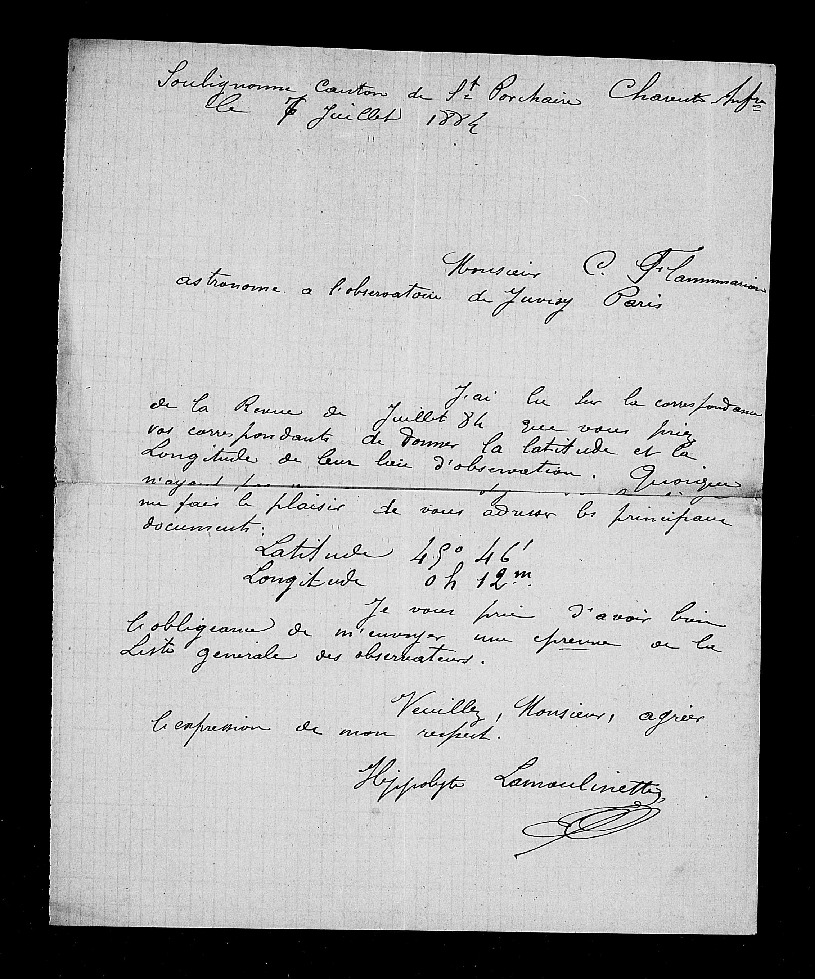 Soulignonne canton de St Porchaire Charente Infre
le 7 Juillet 1884
Monsieur C. Flammarion
astronome a l'observatoire de Juvisy Paris
J'ai lu sur la correspondance
de la Revue de Juillet 84 que vous priez
vos correspondants de donner la latitude et la
Longitude de leur lieu d'observation. Quoique
n'ayant
me fais le plaisir de vous adresser les principaux
documents:
Latitude 45° 46'
Longitude 0h 12m.
Je vous prie d'avoir bien
l'obligeance de m'envoyer une epreuve de la
Liste generale des observateurs.
Veuillez, Monsieur, agréer
l'expression de mon respect.
Hippolyte Lamoulinette